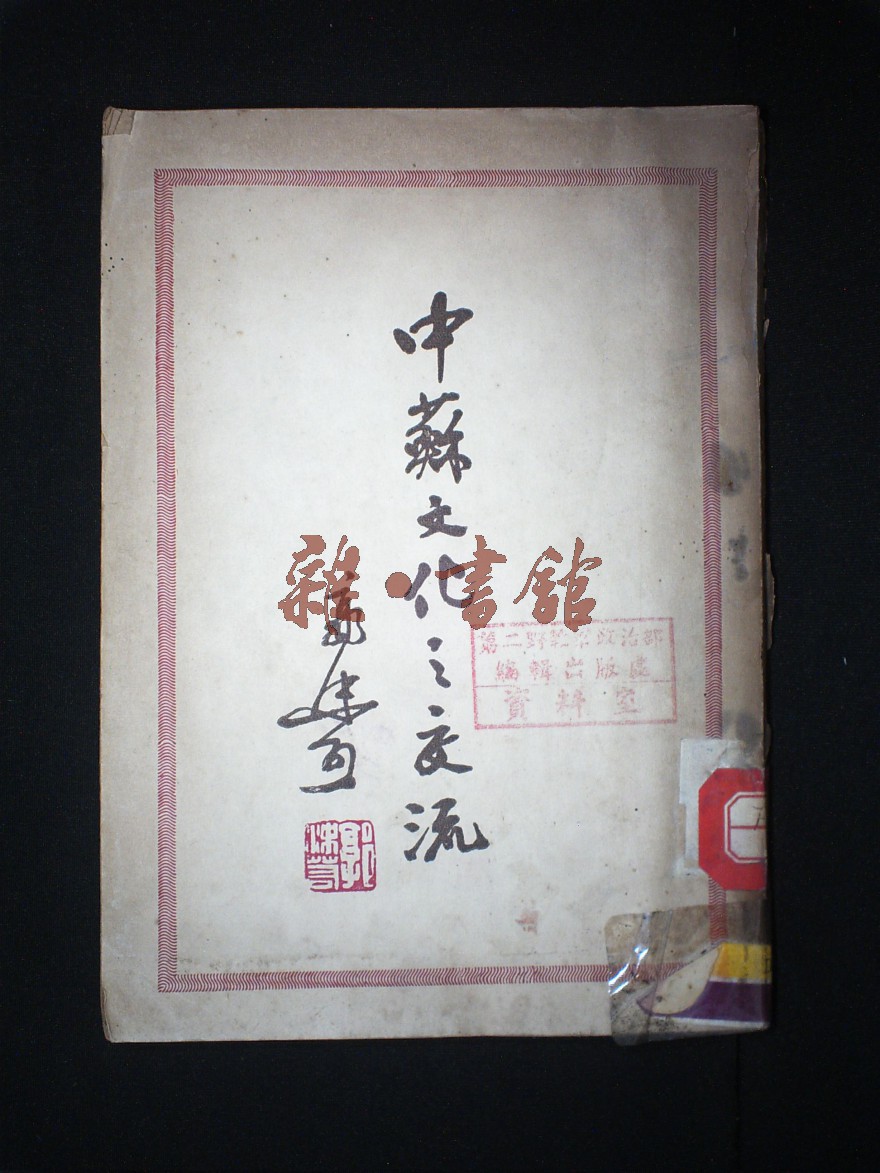 中蘇文化之交流
郭沫若
郭沫若
雜·書館
第二野戰軍政治部
編輯出版處
資料室